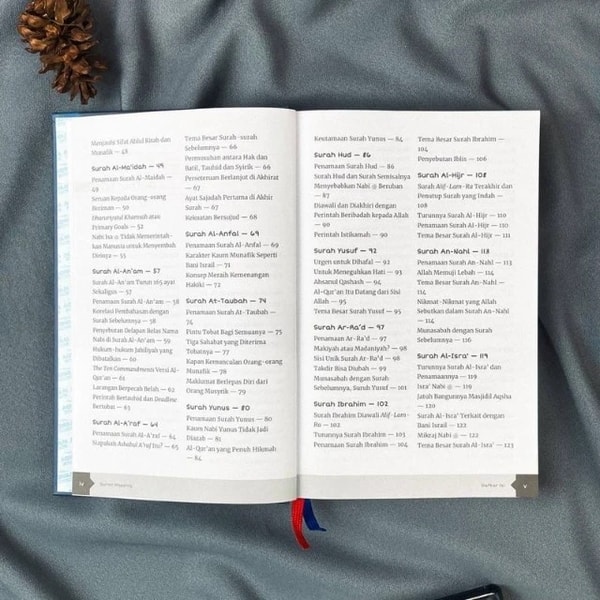 Mengaku Sifat Ahlul Kitab dan
Munafik — 48
Surah Al-Ma'idah — 49
Penamaan Surah Al-Maidah —
49
Seruan Kepada Orang-orang
Beriman — 50
Dharuriyatul Khamsah atau
Primary Goals — 52
Nabi Isa Tidak Memerintah-
kan Manusia untuk Menyembah
Dirinya — 55
Surah Al-An'am — 57
Surah Al-An'am Turun 165 ayat
Sekaligus — 57
Penamaan Surah Al-An'am — 58
Korelasi Pembahasan dengan
Surah Sebelumnya — 58
Penyebutan Delapan Belas Nama
Nabi di Surah Al-An'am — 59
Hukum-hukum Jahiliyah yang
Dibatalkan — 60
The Ten Commandments Versi Al-
Qur'an — 61
Larangan Berpecah Belah — 62
Perintah Bertauhid dan Deadline
Bertobat — 63
Surah Al-A'raf — 64
Penamaan Surah Al-A'raf — 64
Siapakah Ashabul A'raf Itu? — 65
Tema Besar Surah-surah
Sebelumnya — 66
Permusuhan antara Hak dan
Batil, Tauhid dan Syirik — 66
Perseteruan Berlanjut di Akhirat
— 67
Ayat Sajadah Pertama di Akhir
Surah — 67
Kekuatan Bersujud — 68
Surah Al-Anfal — 69
Penamaan Surah Al-Anfal — 69
Karakter Kaum Munafik Seperti
Bani Israil — 71
Konsep Meraih Kemenangan
Hakiki — 72
Surah At-Taubah — 74
Penamaan Surah At-Taubah —
74
Pintu Tobat Bagi Semuanya — 75
Tiga Sahabat yang Diterima
Tobatnya — 77
Kapan Kemunculan Orang-orang
Munafik — 78
Maklumat Berlepas Diri dari
Orang Musyrik — 79
Surah Yunus — 80
Penamaan Surah Yunus — 80
Kaum Nabi Yunus Tidak Jadi
Diazab — 81
Al-Qur'an yang Penuh Hikmah
— 84
iv
Keutamaan Surah Yunus — 84
Surah Hud — 86
Penamaan Surah Hud — 86
Surah Hud dan Surah Semisalnya
Menyebabkan Nabi ﷺ Beruban
— 87
Diawali dan Diakhiri dengan
Perintah Beribadah kepada Allah
— 90
Perintah Istikamah — 90
Surah Yusuf — 92
Urgen untuk Dihafal — 92
Untuk Menegahkan Hati — 93
Ahsanul Qashash — 94
Al-Qur'an Itu Datang dari Sisi
Allah — 95
Tema Besar Surah Yusuf — 95
Surah Ar-Ra'd — 97
Penamaan Ar-Ra'd — 97
Makiyah atau Madaniyah? — 98
Sisi Unik Surah Ar-Ra'd — 98
Takdir Bisa Diubah — 99
Munasabah dengan Surah
Sebelumnya, Surah Yusuf — 101
Surah Ibrahim — 102
Surah Ibrahim Diawali Alif-Lam-
Ra — 102
Turunnya Surah Ibrahim — 103
Penamaan Surah Ibrahim — 104
Tema Besar Surah Ibrahim —
104
Penyebutan Iblis — 106
Surah Al-Hijr — 108
Surah Alif-Lam-Ra Terakhir dan
Penutup Surah yang Indah —
108
Turunnya Surah Al-Hijr — 110
Penamaan Surah Al-Hijr — 110
Tema Besar Surah Al-Hijr — 111
Surah An-Nahl — 113
Penamaan Surah An-Nahl — 113
Allah Memuji Lebah — 114
Tema Besar Surah An-Nahl —
114
Nikmat-Nikmat yang Allah
Sebutkan dalam Surah An-Nahl
— 114
Munasabah dengan Surah
Sebelumnya — 116
Surah Al-Isra' — 119
Turunnya Surah Al-Isra' dan
Penamaannya — 119
Isra' Nabi ﷺ — 119
Jatuh Bangunnya Masjidil Aqsha
— 120
Surah Al-Isra' Terkait dengan
Bani Israil — 122
Mikraj Nabi ﷺ — 122
Tema Besar Surah Al-Isra' — 123
Daftar Isi
v